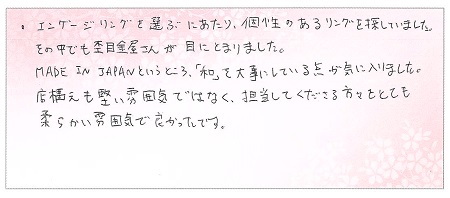 ・エンゲージリングを選ぶにあたり、個性のあるリングを探していました。
その中でも杢目金屋さんが目にとまりました。
MADE IN JAPANというところ、「和」を大事にしている点が気に入りました。
店構えも堅い雰囲気ではなく、担当してくださる方々もとても
柔らかい雰囲気で良かったです。